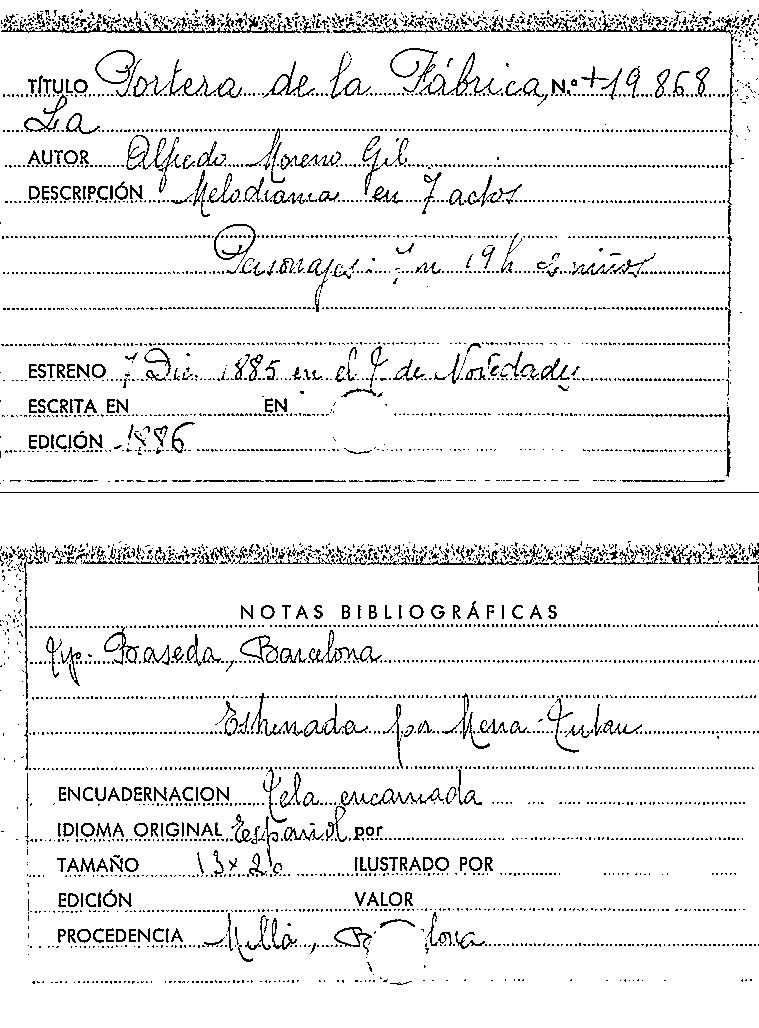 TÍTULO Portera de la Fábrica, N.º +19868
La
AUTOR Alfredo Moreno Gil
DESCRIPCIÓN Melodrama en 7 actos
Personajes: 7 m 19 h 2 niños
ESTRENO 7 Dic. 1885 en el T. de Novedades
ESCRITA EN EN
EDICIÓN 1886
NOTAS BIBLIOGRÁFICAS
Typ. Baseda, Barcelona
Estrenada por Mena-Tutau
ENCUADERNACION Tela encarnada
IDIOMA ORIGINAL Español por
TAMAÑO 13 x 20 ILUSTRADO POR
EDICIÓN VALOR
PROCEDENCIA Millá, B lona